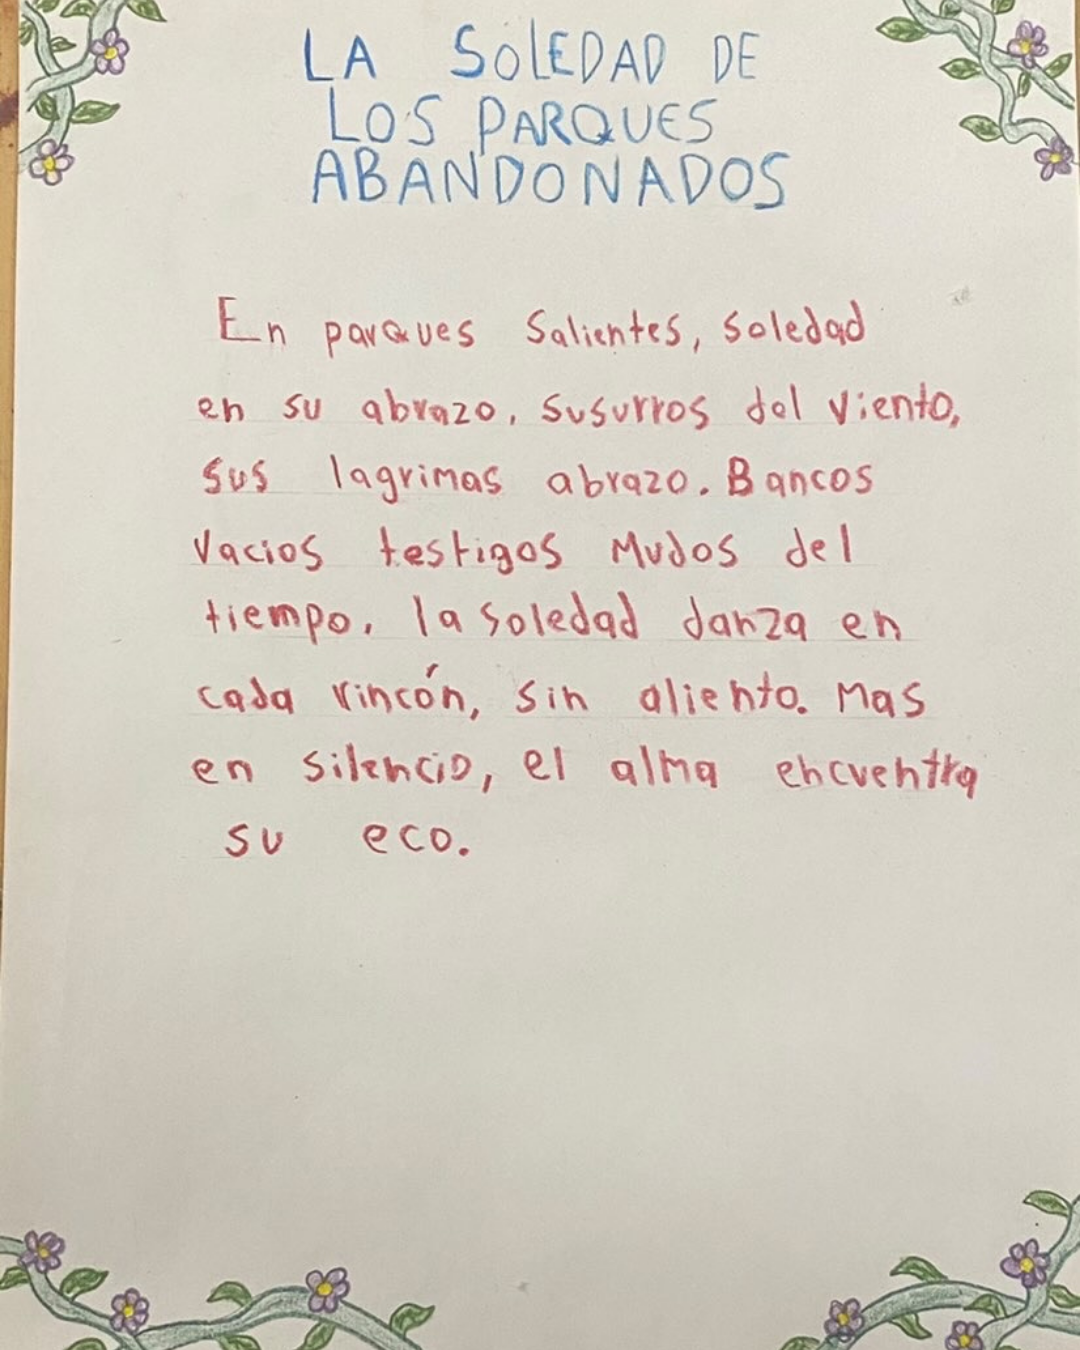 LA SOLEDAD DE
LOS PARQUES
ABANDONADOS
En parques Salientes, soledad
en su abrazo, susurros del viento,
sus lagrimas abrazo. Bancos
vacios testigos Mudos del
tiempo, la soledad danza en
cada rincón, sin aliento. Mas
en silencio, el alma encuentra
su eco.